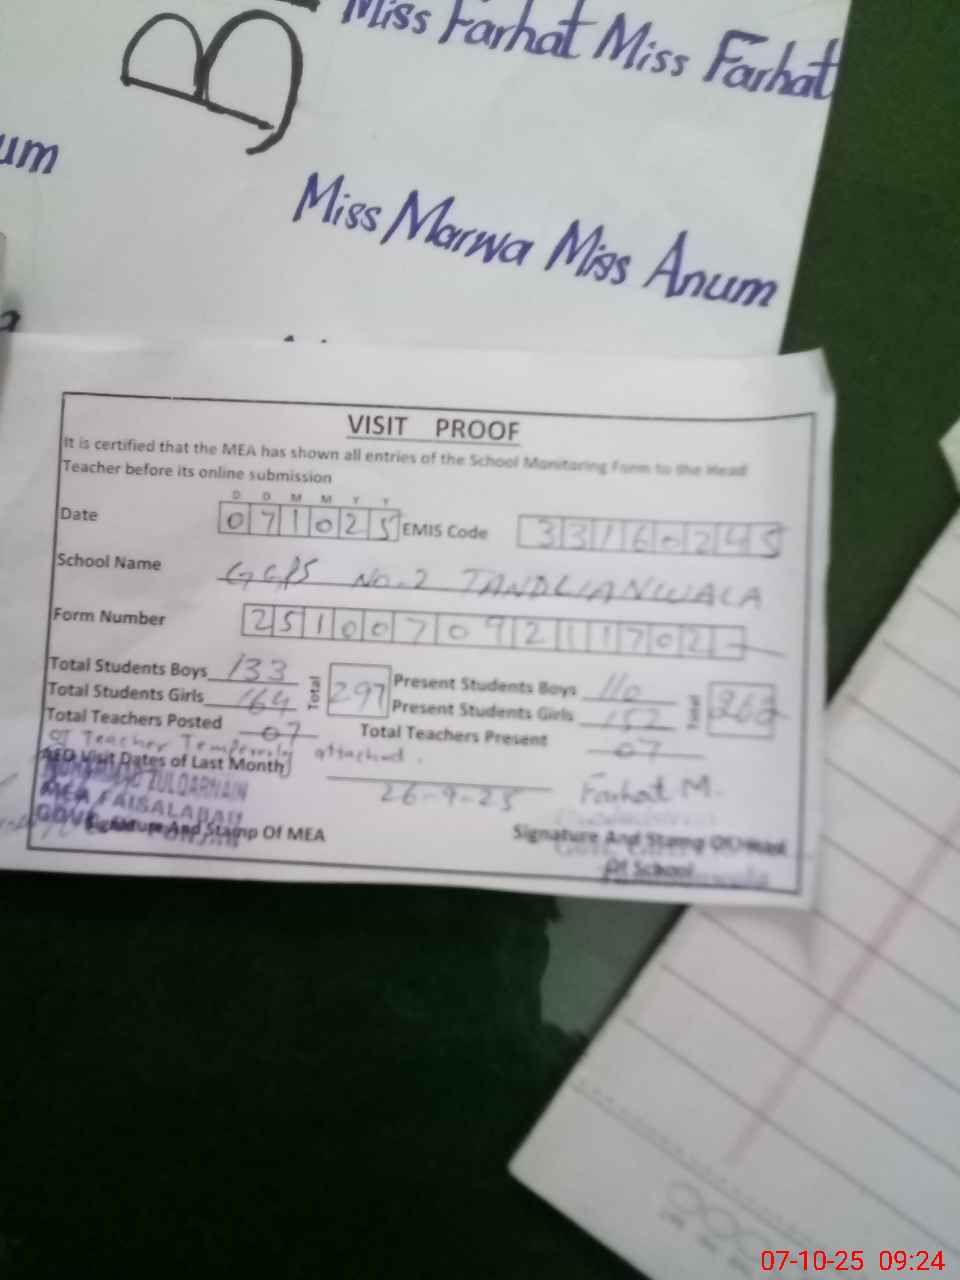 B
Miss Farhat Miss Farhat
um
Miss Marwa Miss Anum
VISIT PROOF
It is certified that the MEA has shown all entries of the School Monitoring Form to the Head
Teacher before its online submission
D D M M Y Y
Date 071025 EMIS Code 33160245
School Name GGPS No.2 TANDLIANWALA
Form Number 251007092111702
Total Students Boys 133 Total 297 Present Students Boys 110 Total 262
Total Students Girls 164 Present Students Girls 152
Total Teachers Posted 07 Total Teachers Present 07
01 Teacher Temperorly attached.
AEO Visit Dates of Last Month 26-9-25
Farhat M.
ZULQARNAIN
MEA FAISALABAD
GOVT.
Signature And Stamp Of MEA Signature And Stamp Of Head
Of School
07-10-25 09:24